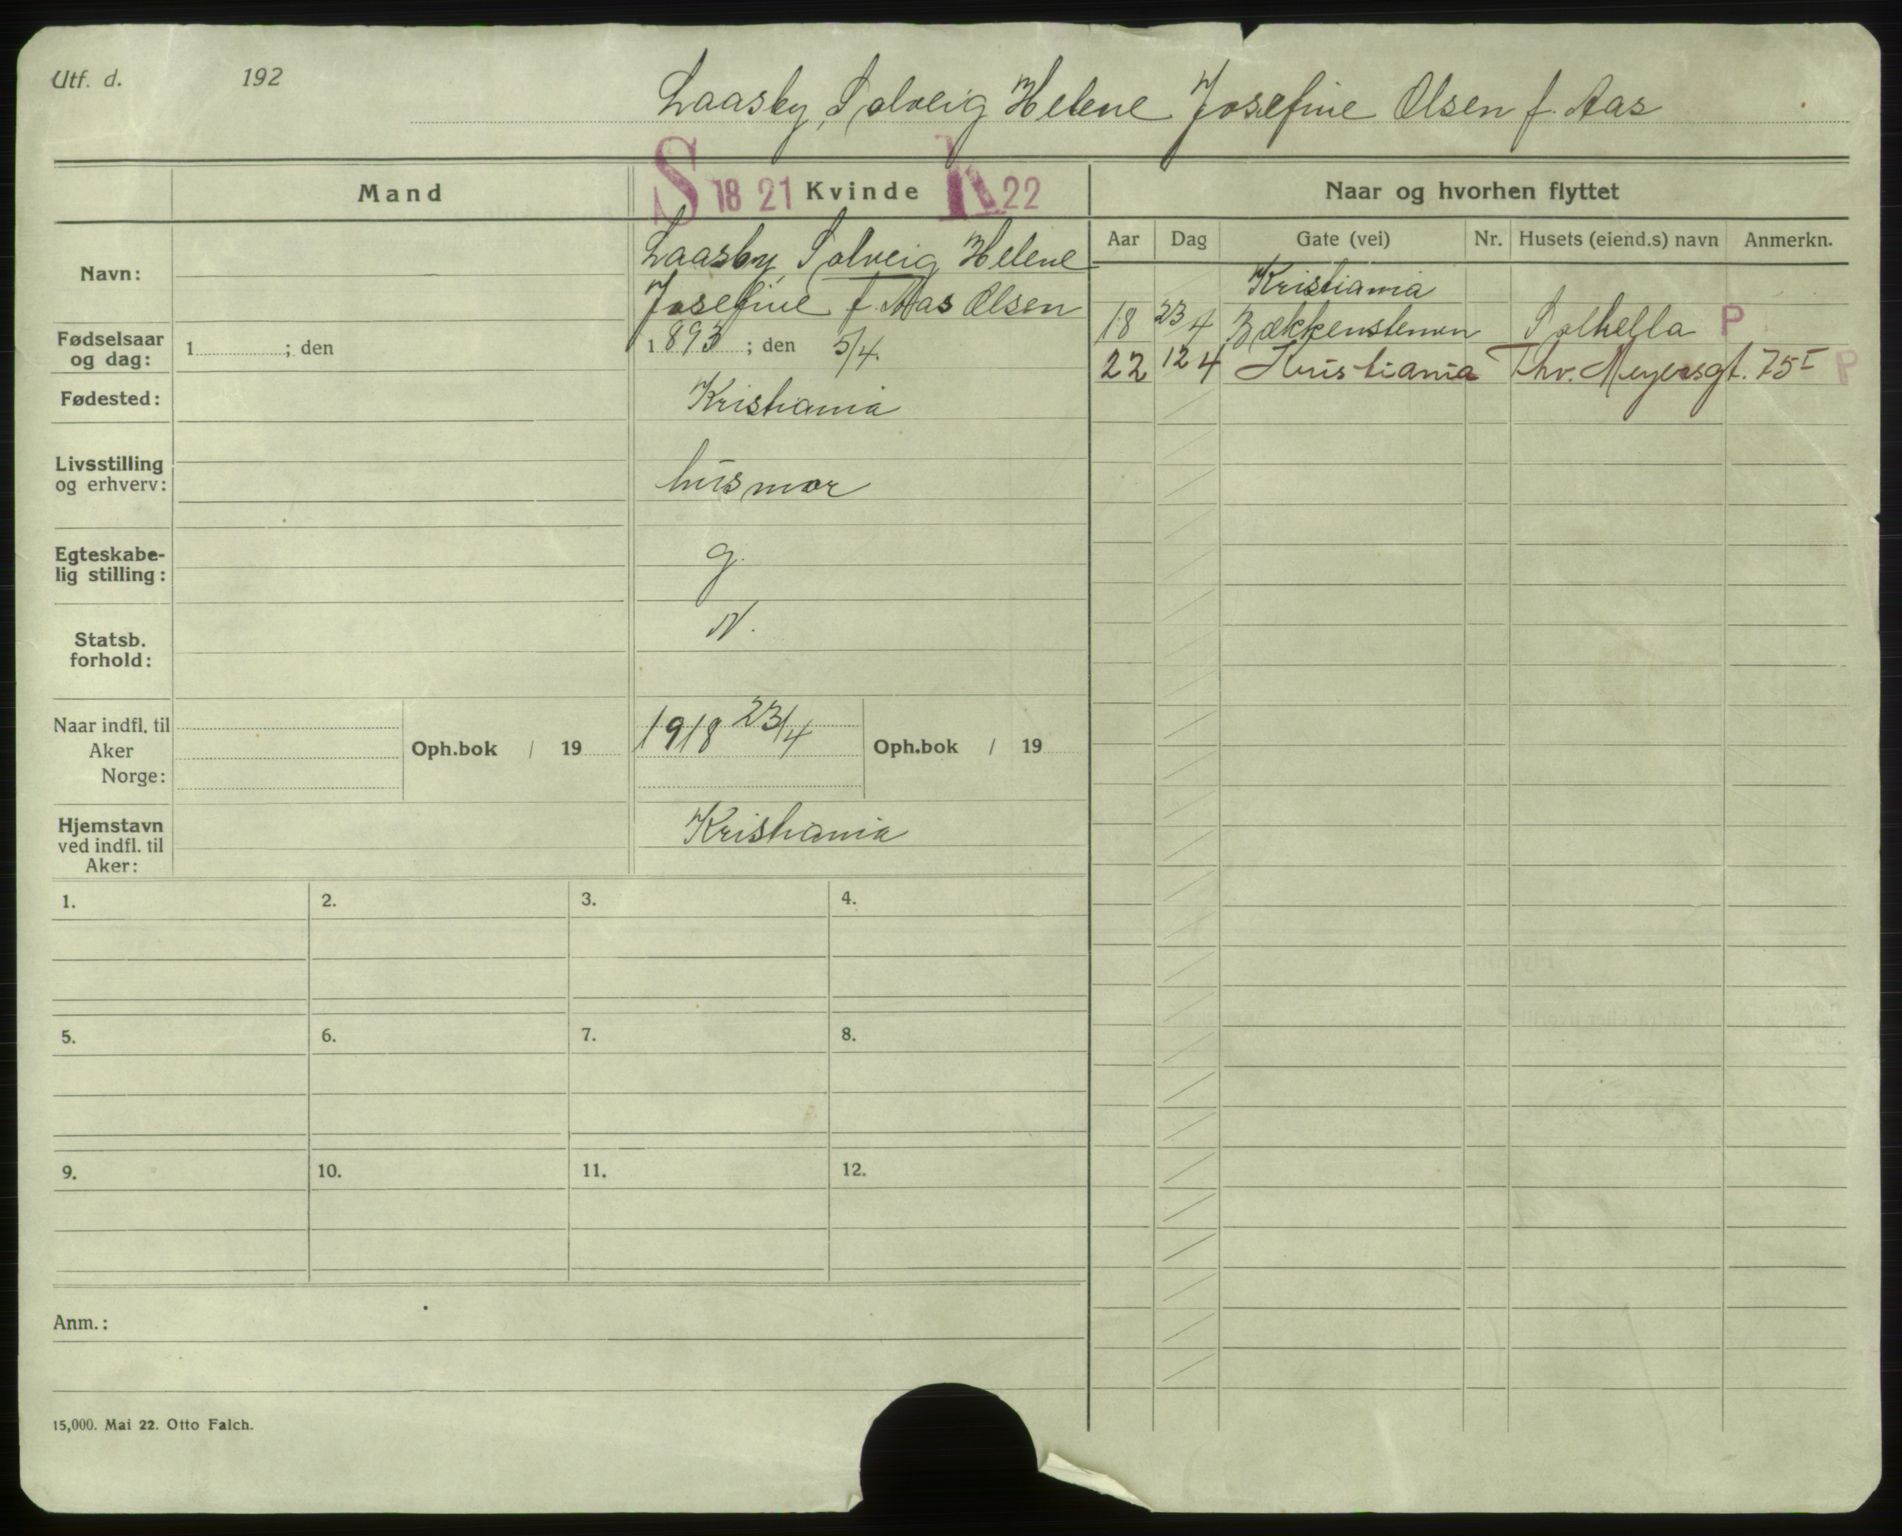 Utf. d. 192
Laasby, Solveig Helene Josefine Olsen f. Aas
Mand
S 18 21 Kvinde K 22
Naar og hvorhen flyttet
Navn:
Laasby, Solveig Helene
Josefine f. Aas Olsen
Aar Dag Gate (vei) Nr. Husets (eiend.s) navn Anmerkn.
Kristiania
18 23/4 Bækkenstenen Solhella P
22 12/4 Kristiania Thv. Meyersgt. 75 I P
Fødselsaar
og dag:
1 ; den
1893 ; den 5/4.
Fødested:
Kristiania
Livsstilling
og erhverv:
husmor
Egteskabe-
lig stilling:
g.
Statsb.
forhold:
N.
Naar indfl. til
Aker
Norge:
Oph.bok / 19
1918 23/4
Oph.bok / 19
Hjemstavn
ved indfl. til
Aker:
Kristiania
1. 2. 3. 4.
5. 6. 7. 8.
9. 10. 11. 12.
Anm.:
15,000. Mai 22. Otto Falch.